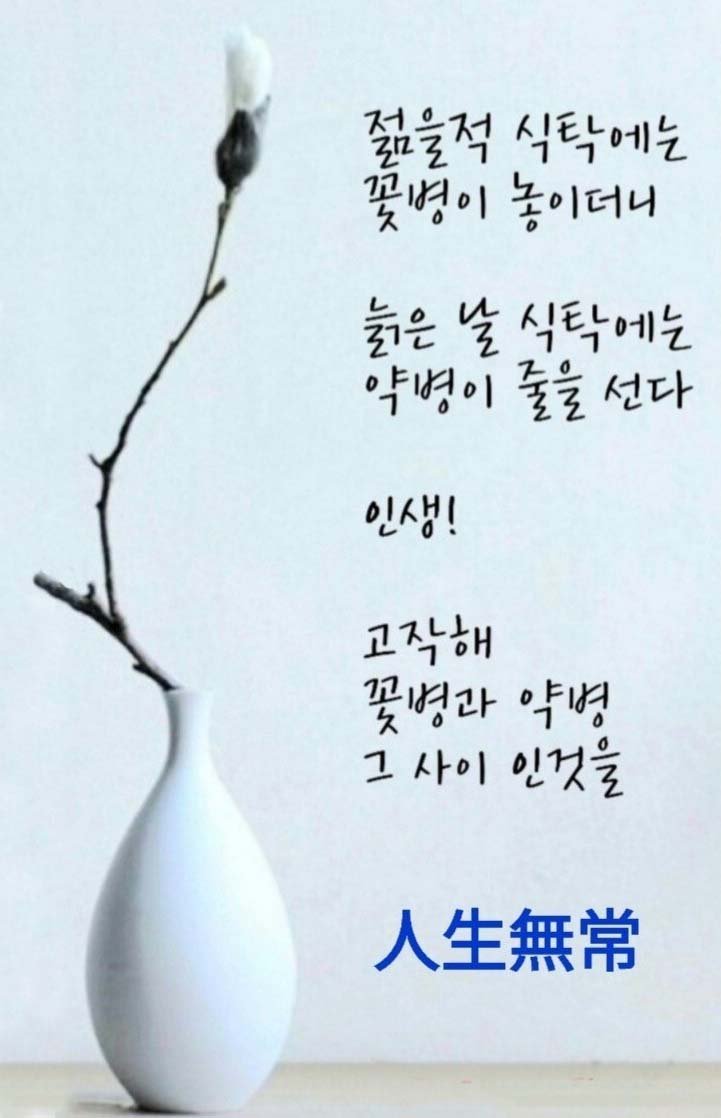 젊을적 식탁에는
꽃병이 놓이더니
늙은 날 식탁에는
약병이 줄을 선다
인생!
고작해
꽃병과 약병
그 사이 인것을
人生無常